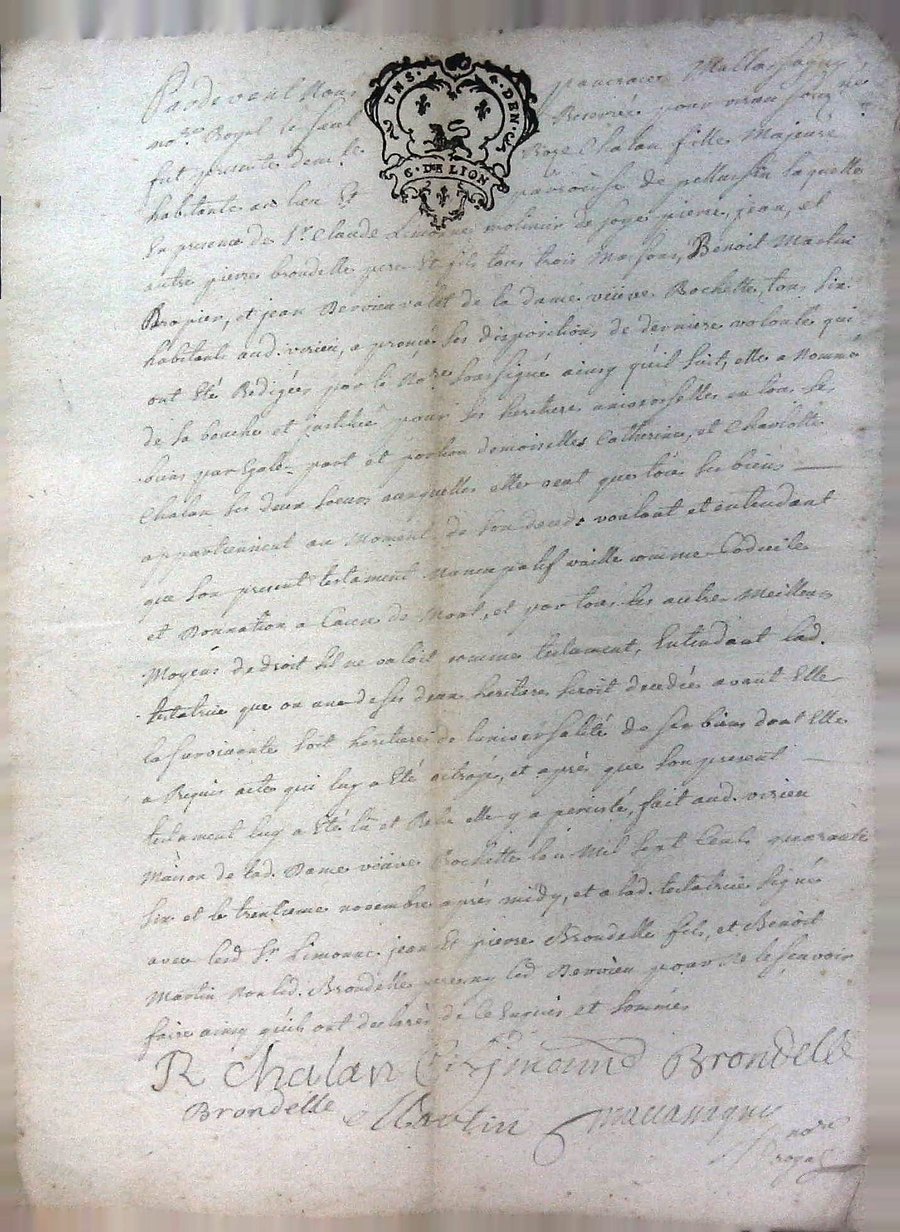 UNS. 4. DEN.
G. DE LION
Pardevant Nous
no.re Royal le seul Reservé pour
fut presente dem.lle Roze Chalan fille Majeure
habitante au lieu Et parroisse de pellussin laquelle
En presence de S.r Claude Limone pierre, jean, et
autre pierre brondelle pere Et fils tous trois Massons, Benoit Martin
et jean Bervieu valet de la dame veüve Rochette, tous six
habitants aud. virieu, a ses dispositions de derniere volonté qui
ont Eté Redigées par le No.re soussigné ainsy qu'il suit, elle a Nommé
de sa bouche et institué pour ses heritieres universelles en tous ses
biens par Egale part et portion demoiselles Catherine, et Charlotte
Chalan ses deux soeurs auxquelles elle veut que tous ses biens
appartiennent au Moment de son deceds voulant et entendant
que son present testament Nuncupatif vaille comme Codicile
et Donnation a Cause de Mort, et par tous les autres Meilleurs
Moyens de droit s'il ne valoit comme testament, Entendant lad.
testatrice que ou une de ses deux heritieres seroit decedée avant Elle
la survivante soit heritiere de l'universalité de ses biens dont Elle
a Requis acte qui luy a Eté octroyé, et après que son present
testament luy a Eté lû et Relu elle y a persisté, fait aud. virieu
Maison de lad. Dame veüve Rochette l'an Mil sept Cents quarante
six et le trentieme novembre après midy, et a lad. testatrice signé
avec led S.r Limone jean Et pierre Brondelle fils, et Benoit
Martin Non led. Brondelle pere ny led Bervieu pour ne le sçavoir
faire ainsy qu'ils ont declarés de ce Enquis et sommés
R Chalan C. Limonne Brondelle
Brondelle Martin
no.re
royal